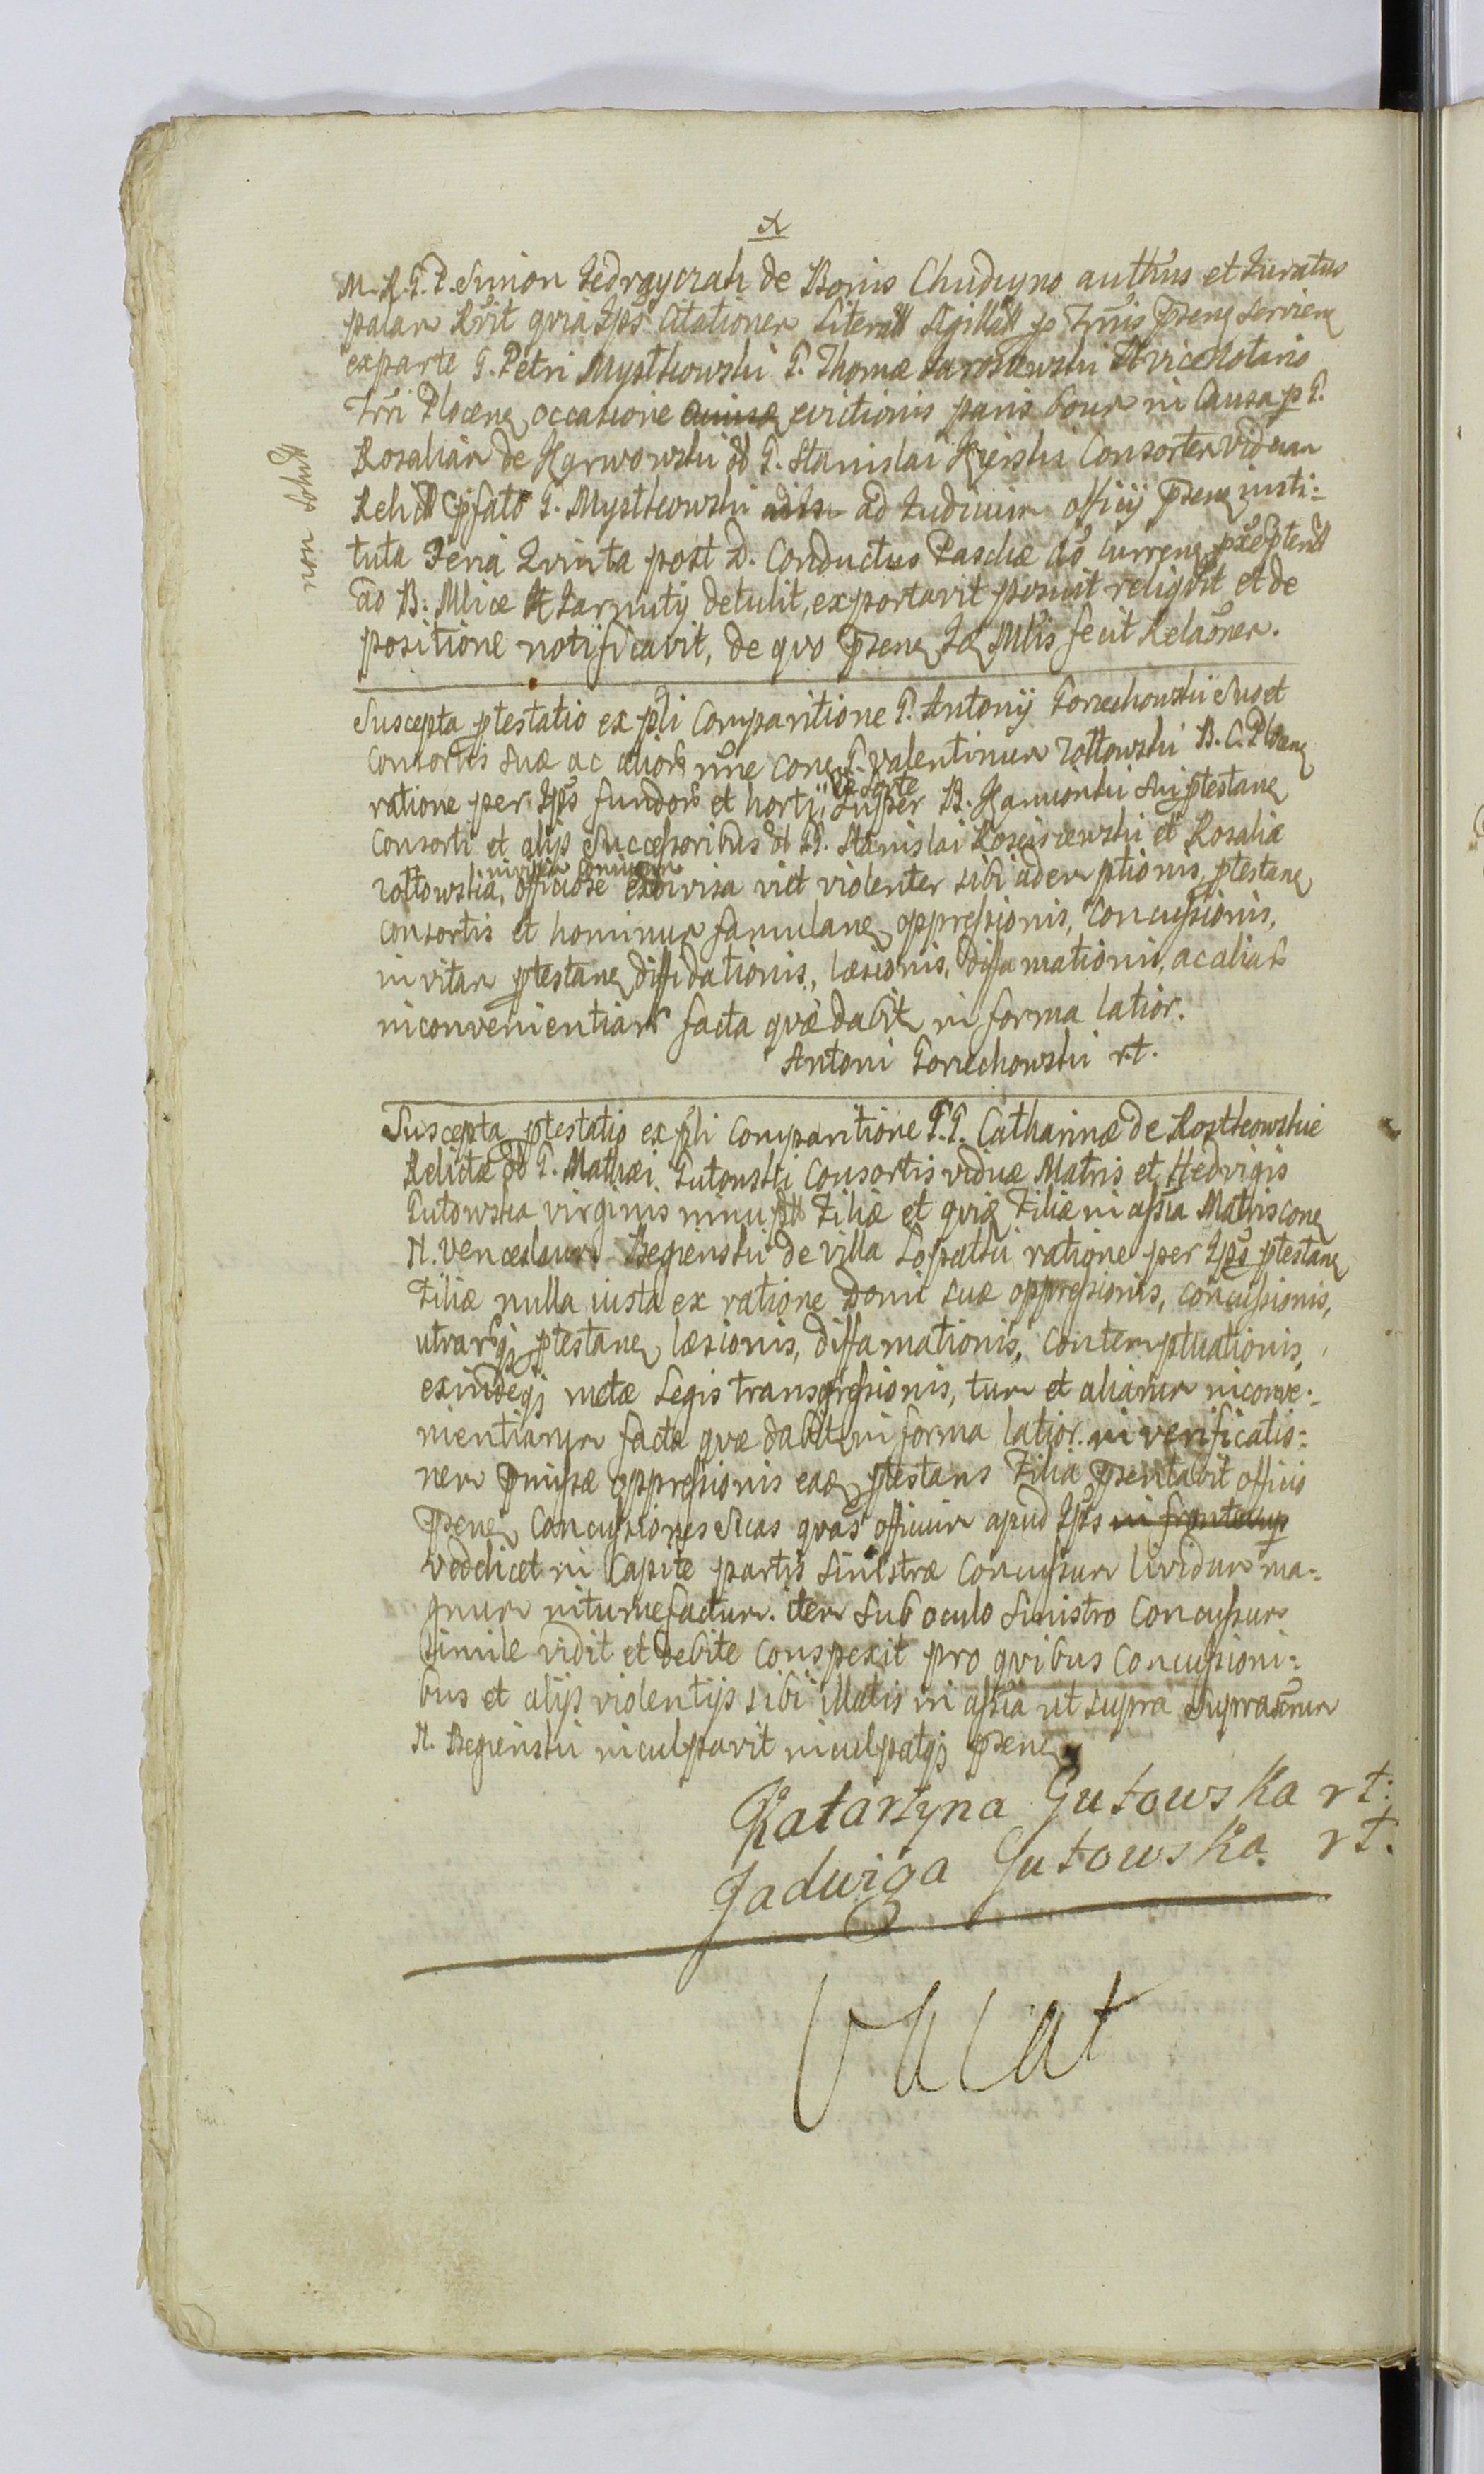 x
M. R. G. P. Simon Jedrzyczak de Bonis Chudzyno auth̃us et Juratus
palam R̃vit qvia Ips̃ Citationem Literał Sigillał p̱ Tr̃ris p̃senȩ servienȩ
exparte G. Petri Mystkowski G. Thomæ Jarosławski viceNotario
Tr̃ri Plocenȩ occasione evictionis paris boum in Causa p̱ G.
Rosaliam de Karwowski ol G. Stanislai Kijeński Consortem viduam
Relictt p̃fato G. Mystkowski ad Judicium officij p̃senȩ insti:
tuta Feria Qvinta post D. Conductus Paschæ Ao currenȩ
ad B: Mlice et Jarnuty detulit, exportavit posuit reliqvit et de
positione notificavit, de qvo p̃senȩ Mtis̃ fecit Relaõnem.
non solvit
Suscepta p̱testatio ex p̃li Comparitione G. Antonij Gorzechowski suo et
Consortis suæ ac alior̃ nõie Conȩ G. Valentinum Zołtowski B. C. Plocenȩ
ratione per Ips̃ fundor̃ et hortij de sorte super B. Kamionki sui p̱testanȩ
Consorti et alijs Successoribus ol G. Stanislai Kosciszewski et Rosaliæ
Zołtowska, officiose exdivisa vict violenter sibi ademptionis, p̱testanȩ
consortis et hominum famulanȩ oppressionis, Concussionis,
in vitam p̱testanȩ diffidationis, læsionis, diffamationis, ac aliar̃
inconvenientiar̃ facta qvæ dabitȩ in forma latior.
Antoni Gorzechowski r.t.
Suscepta p̱testatio ex p̃li Comparitione G.G. Catharinæ de Kostkowskie
Relictæ ol G. Mathæi Gutowski Consortis viduæ Matris et Hedvigis
Gutowska virginis innuptt Filiæ et qvidȩ Filiæ in ass̃ia Matris conȩ
N. Venceslaum Bepienski de villa Łopatki ratione per Ips̃ p̱testanȩ
Filiæ nulla iusta ex ratione Domi suæ oppressionis, concussionis,
utrarq̃ȝ p̱testanȩ læsionis, diffamationis, contemptuationis,
exindeqȝ metæ Legis transgressionis, tum et aliarum inconve:
nientiarum facta qvæ dabitȩ in forma latior. in verificatio:
nem p̃missæ oppressionis eadȩ p̱testans Filia p̃sentavit officio
p̃senȩ Concussiones suas qvas officium apud Ips̃ in fronte sup
vedelicet in Capite partis sinistræ Concussum lividum ma:
gnum intumefactum. item sub oculo sinistro Concussum
simile vidit et debite conspexit pro qvibus Concussioni:
bus et alijs violentijs sibi illatis in ass̃ia ut supra supraścrum
N. Bepienski inculpavit inculpatqȝ p̃senȩ
Katarzyna Gutowska rt:
Jadwiga Gutowska. rt.
Vacat